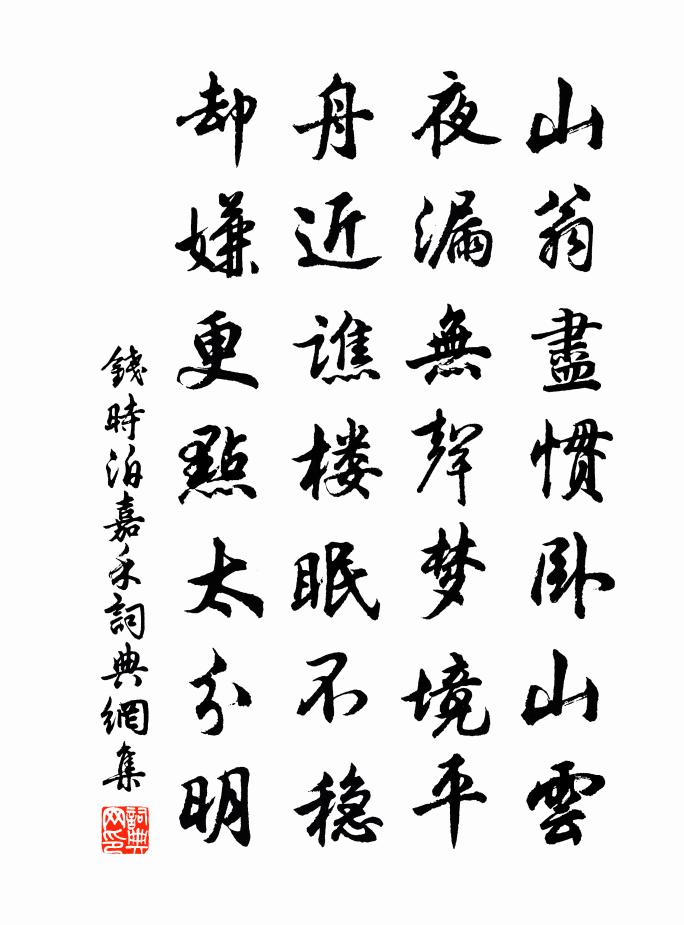 山翁盡慣卧山雲
夜漏無聲梦境平
舟近譙楼眠不稳
却嫌更點太分明
錢時泊嘉禾詞典網集
詞典网印